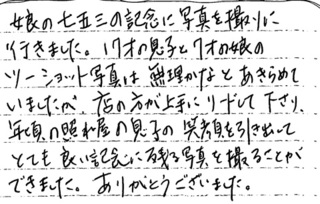 娘の七五三の記念に写真を撮りに
行きました。17才の息子と7才の娘の
ツーショット写真は無理かなとあきらめて
いましたが、店の方が上手にリードして下さり、
年頃の照れ屋の息子の笑顔を引き出して
とても良い記念に残る写真を撮ることが
できました。ありがとうございました。